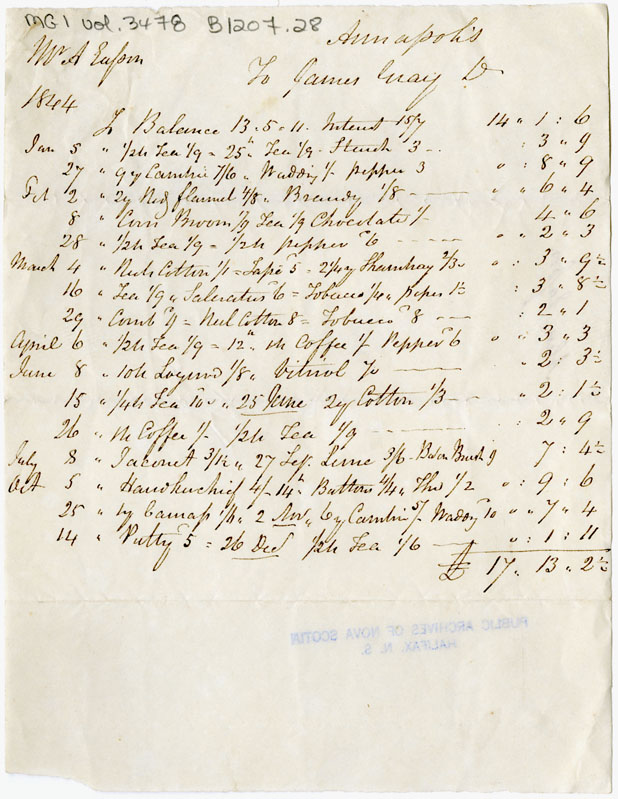 MG1 vol. 3478 B1207.28
Annapolis
Mr A Eason
To James Gray Dr
1844
To Balance 13.5.11. Interest 15/7 14 " 1 : 6
Jan 5 " 1/2 lb Tea 1/9 = 25th Tea 1/9 - Starch 3 - . : 3 " 9
27 " 9 y Cambric 7/6 " Wadding 1/- pepper 3 " : 8 " 9
Feb 2 " 2y Red flannel 4/8 " Brandy 1/8 - " " 6 " 4
8 " Corn Broom 1/9 Tea 1/9 Chocolate 1/- 4 " 6
28 " 1/2 lb Tea 1/9 = 1/2 lb pepper 6 - " " 2 " 3
March 4 " Reel Cotton 1/1 = Tape 5 - 2 1/4 y 2/3 " : 3 " 9 1/2
16 " Tea 1/9 " Saleratus 6 = Tobacco 1/4 " pipes 1 1/2 : 3 " 8 1/2
29 " Comb 9 = Reel Cotton 8 = Tobacco 8 - : 2 " 1
April 6 " 1/2 lb Tea 1/9 = 12th 1 lb Coffee 1/- Pepper 6 " " 3 " 3
June 8 " 10 lb Logwood 1/8 " Vitriol - " 2 : 3 1/2
15 " 1/4 lb Tea 10 " 25 June 2y Cotton 1/3 - " 2 : 1 1/2
26 " 1 lb Coffee 1/- 1/2 lb Tea 1/9 - : 2 " 9
July 8 " Jaconet " 27 Sep. Lime 3/6 - Brush 9 7 : 4 1/2
Oct 5 " Handkerchief 4/- 14th Buttons 4/4 " 1/2 " : 9 : 6
25 " 1y Canvas " 2 Nov " 6y Cambric 5/- Wadding 10 " " 7 " 4
14 " Putty 5 = 26 Dec 1/2 lb Tea 1/6 - " : 1 : 11
£ 17 " 13 " 2 1/2
PUBLIC ARCHIVES OF NOVA SCOTIA
HALIFAX, N. S.